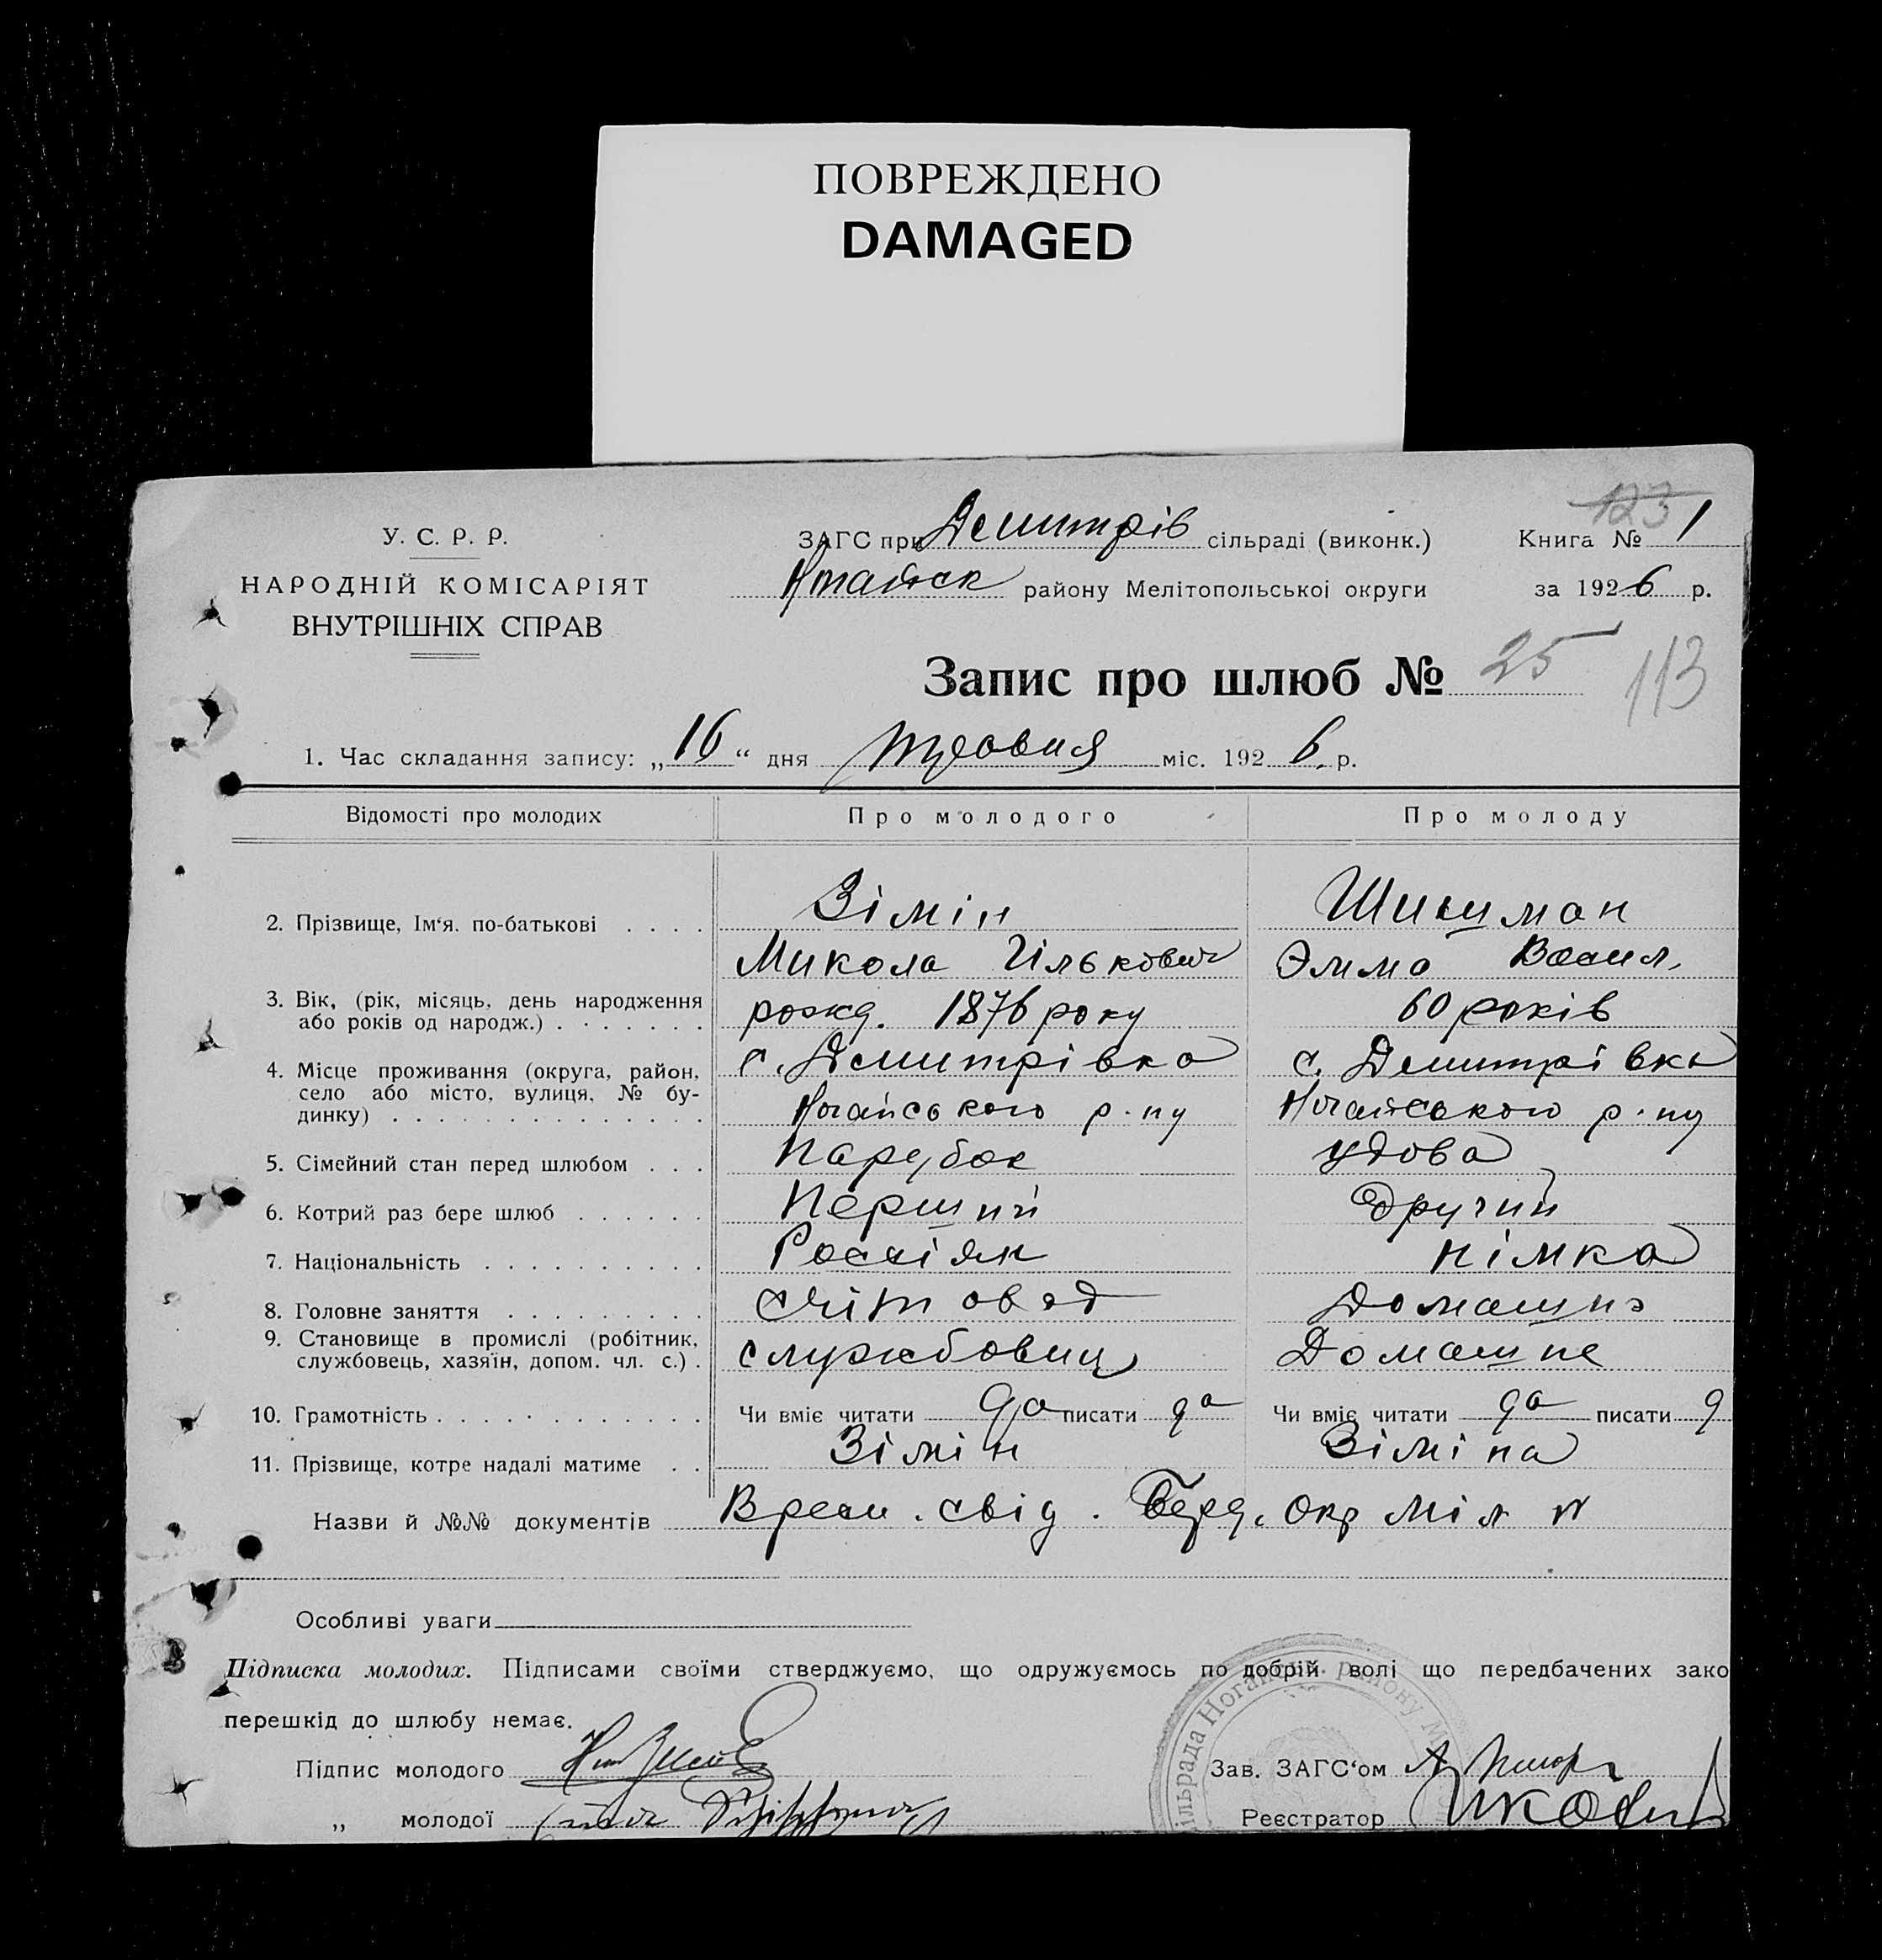 ПОВРЕЖДЕНО
DAMAGED
У. С. Р. Р.
НАРОДНІЙ КОМІСАРІЯТ
ВНУТРІШНІХ СПРАВ
ЗАГС при Демитрів сільраді (виконк.)
району Мелітопольської округи
123
Книга № 1
за 1926 р.
Запис про шлюб № 25
113
1. Час складання запису: „16“ дня травня міс. 1926. р.
Відомості про молодих Про молодого Про молоду
2. Прізвище, Ім‘я. по-батькові . . . . Зімін Шишман
Микола Ількович Элма Васил.
3. Вік, (рік, місяць, день народження або років од народж.) . . . . . . . рожд. 1876 року 60 років
4. Місце проживання (округа, район, село або місто, вулиця, № будинку) . . . . . . . . . . . . . . . с. Демитрівка с. Демитрівка
Ногайського р-ну Ногайського р-ну
5. Сімейний стан перед шлюбом . . . Парубок удова
6. Котрий раз бере шлюб . . . . . . Перший Другий
7. Національність . . . . . . . . . . Россіян німка
8. Головне заняття . . . . . . . . . счітовод Домашнэ
9. Становище в промислі (робітник, службовець, хазяїн, допом. чл. с.) . службовиц Домашне
10. Грамотність . . . . . . . . . . . . Чи вміє читати да писати да Чи вміє читати да писати д
11. Прізвище, котре надалі матиме . . Зімін Зіміна
Назви й №№ документів Врем. свід. Берд. Окр Міл №
Особливі уваги
Підписка молодих. Підписами своїми стверджуємо, що одружуємось по добрій волі що передбачених зако
перешкід до шлюбу немає.
Підпис молодого
Зав. ЗАГС‘ом
„ молодої
Реєстратор
ільрада Ногайськ. району М